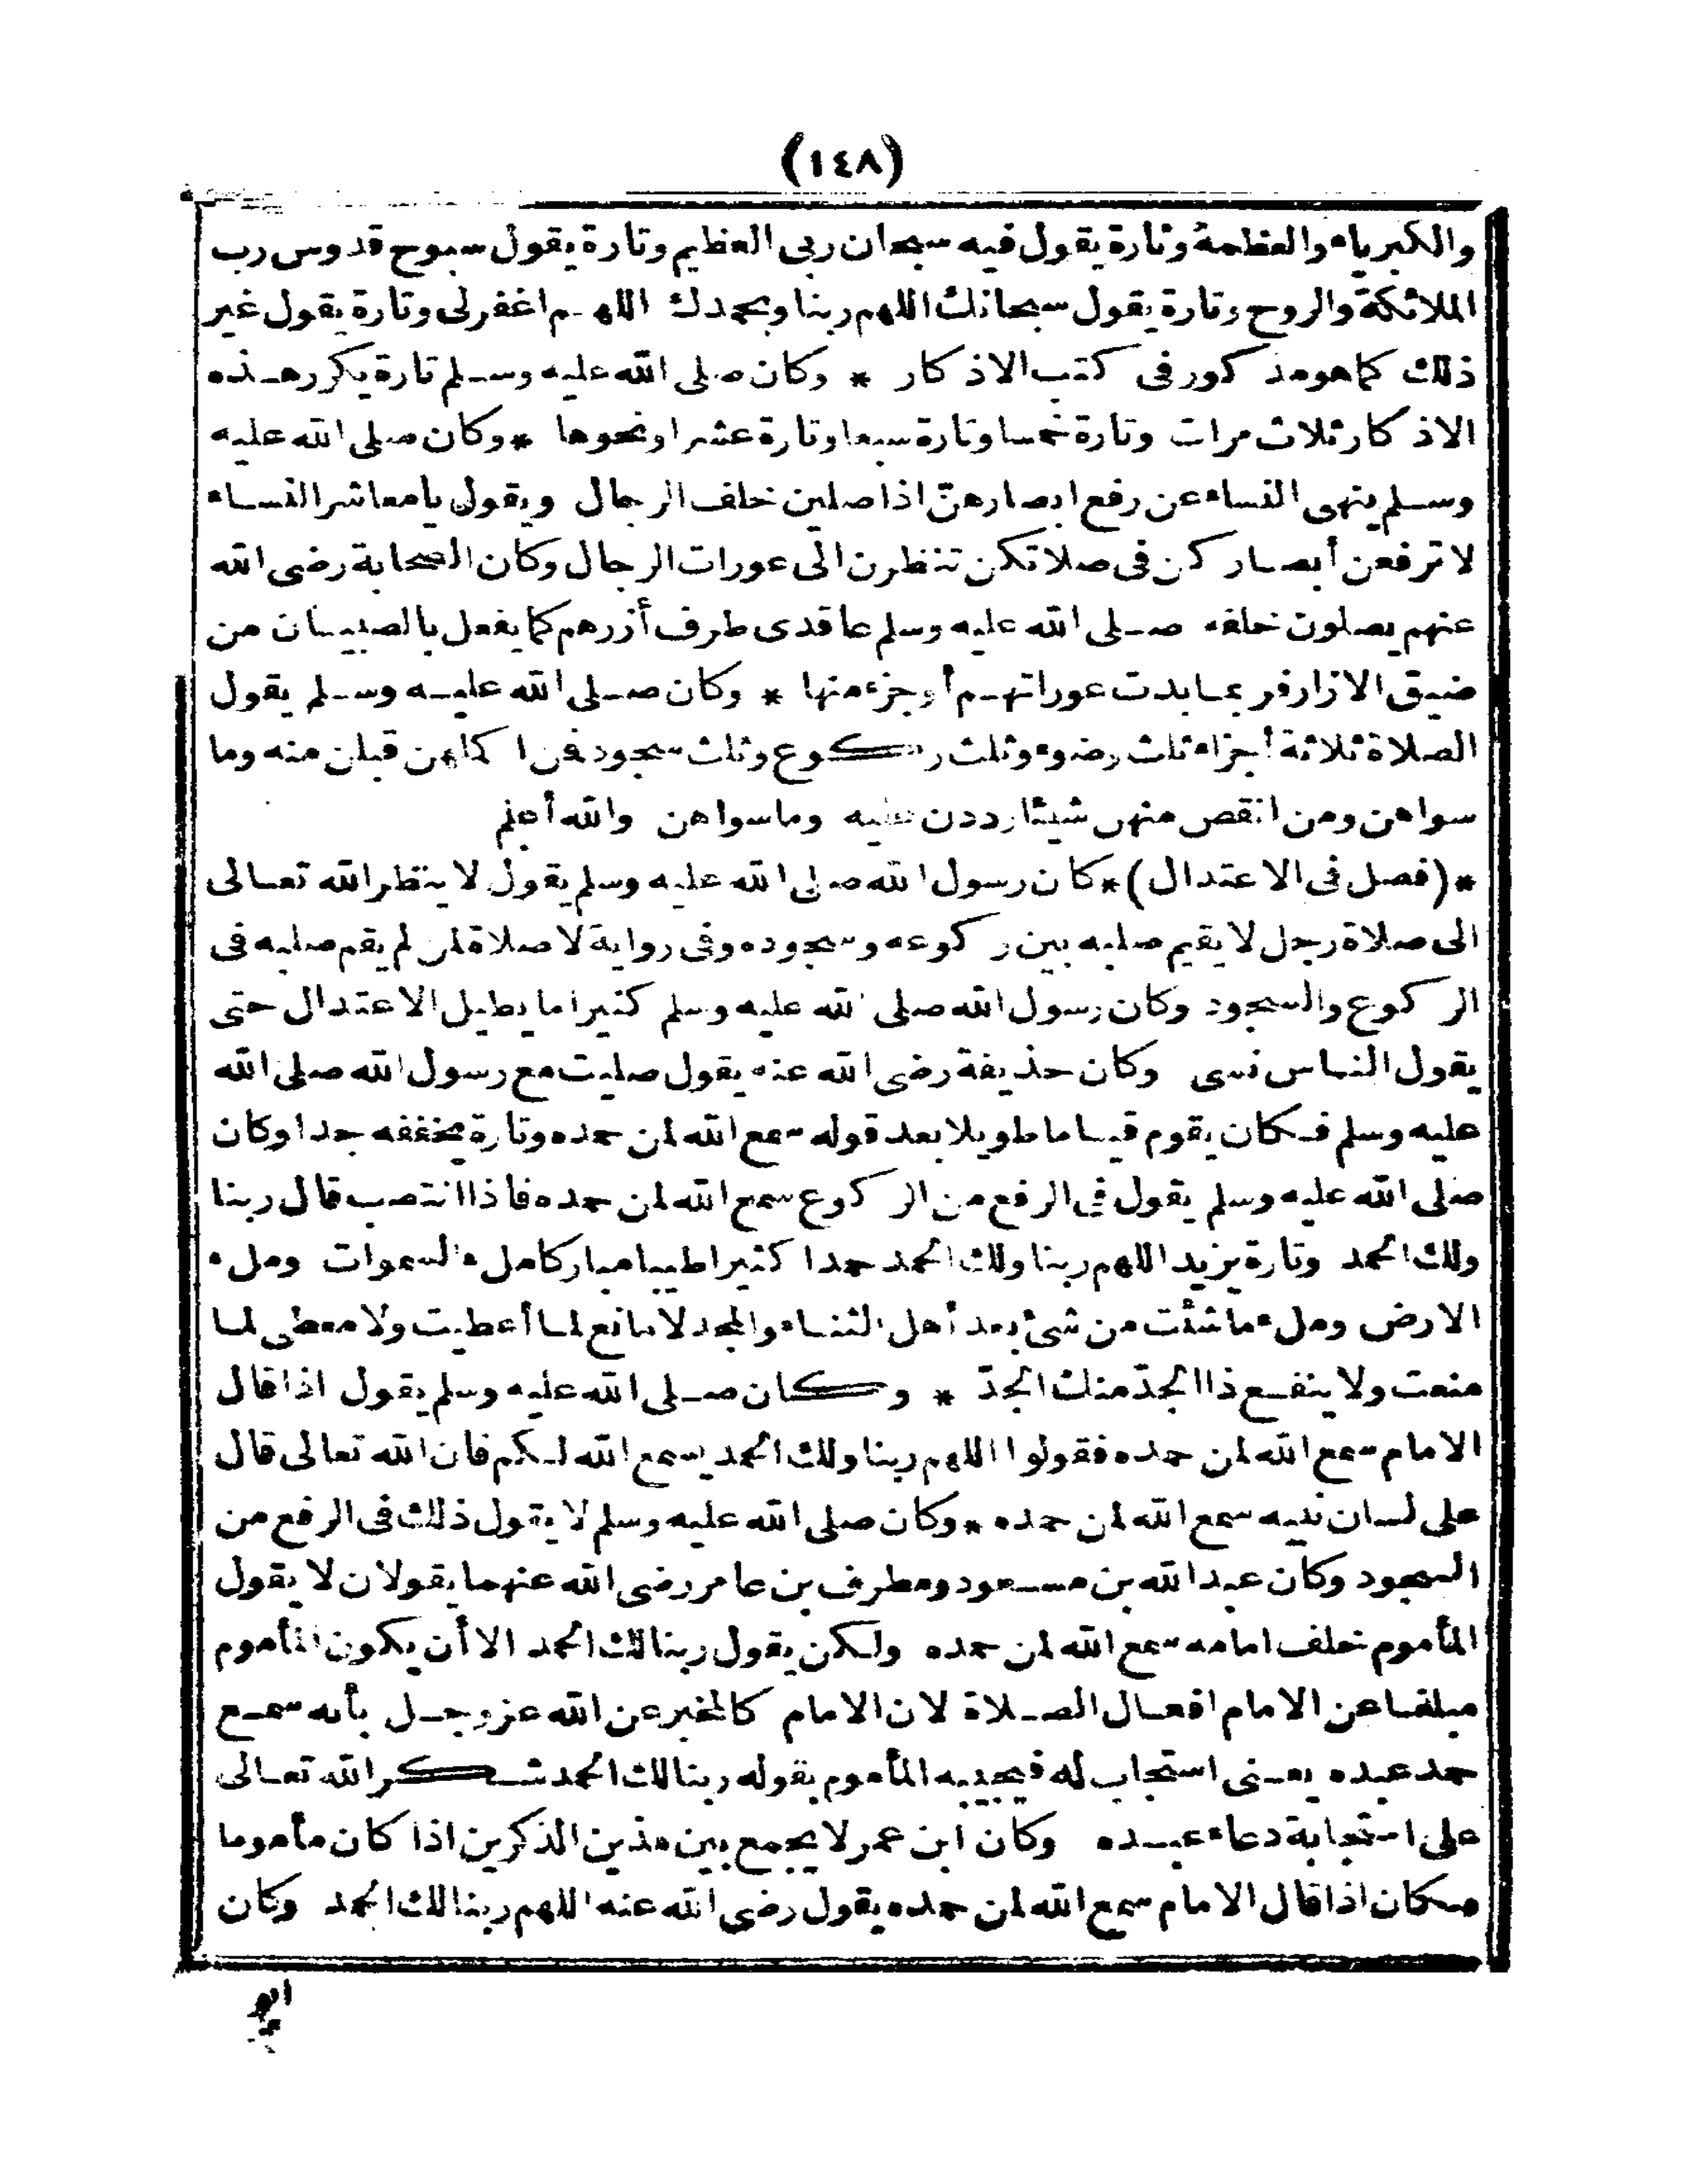 (١٤٨)
والكبرياء والعظمة وتارة يقول فيه سبحان ربى العظيم وتارة يقول سبوح قدوس رب
الملائكة والروح وتارة يقول سبحانك اللهم ربنا وبحمدك اللهم اغفر لى وتارة يقول غير
ذلك كما هو مذكور فى كتب الاذكار * وكان صلى الله عليه وسلم تارة يكرر هذه
الاذكار ثلاث مرات وتارة خمسا وتارة سبعا وتارة عشرا ونحوها * وكان صلى الله عليه
وسلم ينهى النساء عن رفع ابصارهنّ اذا صلين خلف الرجال ويقول يا معاشر النساء
لا ترفعن أبصاركن فى صلاتكن تنظرن الى عورات الرجال وكان الصحابة رضى الله
عنهم يصلون خلفه صلى الله عليه وسلم عاقدى طرف أزرهم كما يفعل بالصبيان من
ضيق الازار فربما بدت عوراتهم أو جزء منها * وكان صلى الله عليه وسلم يقول
الصلاة ثلاثة أجزاء ثلث وضوء وثلث ركوع وثلث سجود فمن اكملهن قبلن منه وما
سواهن ومن انقص منهن شيئا رددن عليه وما سواهن والله أعلم
*(فصل فى الاعتدال)* كان رسول الله صلى الله عليه وسلم يقول لا ينظر الله تعالى
الى صلاة رجل لا يقيم صلبه بين ركوعه وسجوده وفى رواية لا صلاة لمن لم يقم صلبه فى
الركوع والسجود وكان رسول الله صلى الله عليه وسلم كثيرا ما يطيل الاعتدال حتى
يقول الناس نسى وكان حذيفة رضى الله عنه يقول صليت مع رسول الله صلى الله
عليه وسلم فكان يقوم قياما طويلا بعد قوله سمع الله لمن حمده وتارة يخففه جدا وكان
صلى الله عليه وسلم يقول فى الرفع من الركوع سمع الله لمن حمده فاذا انتصب قال ربنا
ولك الحمد وتارة يزيد اللهم ربنا ولك الحمد حمدا كثيرا طيبا مباركا ملء السموات وملء
الارض وملء ما شئت من شئ بعد أهل الثناء والمجد لا مانع لما أعطيت ولا معطى لما
منعت ولا ينفع ذا الجدّ منك الجدّ * وكان صلى الله عليه وسلم يقول اذا قال
الامام سمع الله لمن حمده فقولوا اللهم ربنا ولك الحمد يسمع الله لكم فان الله تعالى قال
على لسان نبيه سمع الله لمن حمده * وكان صلى الله عليه وسلم لا يقول ذلك فى الرفع من
السجود وكان عبد الله بن مسعود ومطرف بن عامر رضى الله عنهما يقولان لا يقول
المأموم خلف امامه سمع الله لمن حمده ولكن يقول ربنا لك الحمد الا أن يكون المأموم
مبلغا عن الامام افعال الصلاة لان الامام كالمخبر عن الله عز وجل بأنه سمع
حمد عبده يعنى استجاب له فيجيبه المأموم بقوله ربنا لك الحمد شكرا لله تعالى
على استجابة دعاء عبده وكان ابن عمر لا يجمع بين هذين الذكرين اذا كان مأموما
فكان اذا قال الامام سمع الله لمن حمده يقول رضى الله عنه اللهم ربنا لك الحمد وكان